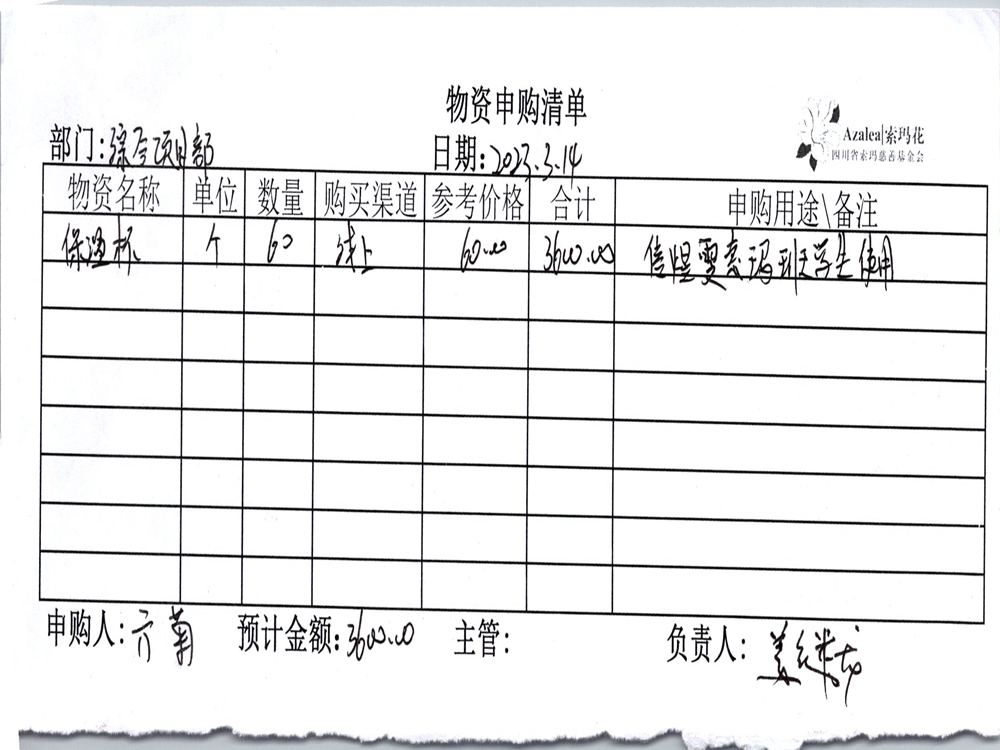 物资申购清单
Azalea|索玛花
四川省索玛慈善基金会
部门:综合项目部 日期:2023.3.14
物资名称 单位 数量 购买渠道 参考价格 合计 申购用途\备注
保温杯 个 60 线上 60.00 3600.00 信煜雯索玛班学生使用
申购人: 预计金额:3600.00 主管: 负责人: